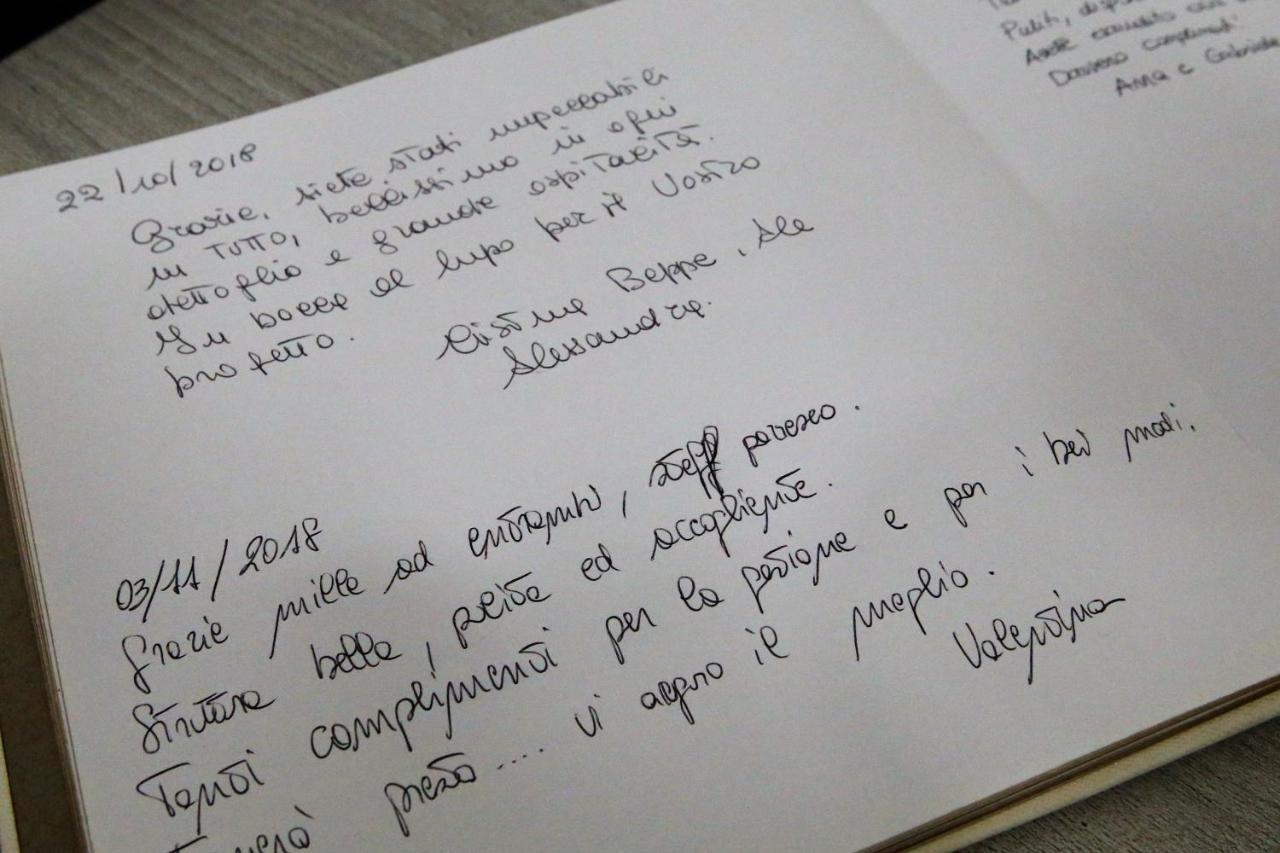 22/10/2018
Grazie, siete stati impeccabili
in tutto, bellissimo in ogni
dettaglio e grande ospitalità.
In bocca al lupo per il Vostro
progetto.
Cristina Beppe, Ale
Alessandra.
03/11/2018
Grazie mille ad entrambi, staff pazzesco.
Struttura bella, pulita ed accogliente.
Tanti complimenti per la gestione e per i bei modi.
Tornerò presto.... vi auguro il meglio.
Valentina
Puliti,
Davvero complimenti
Anna e Gabriele